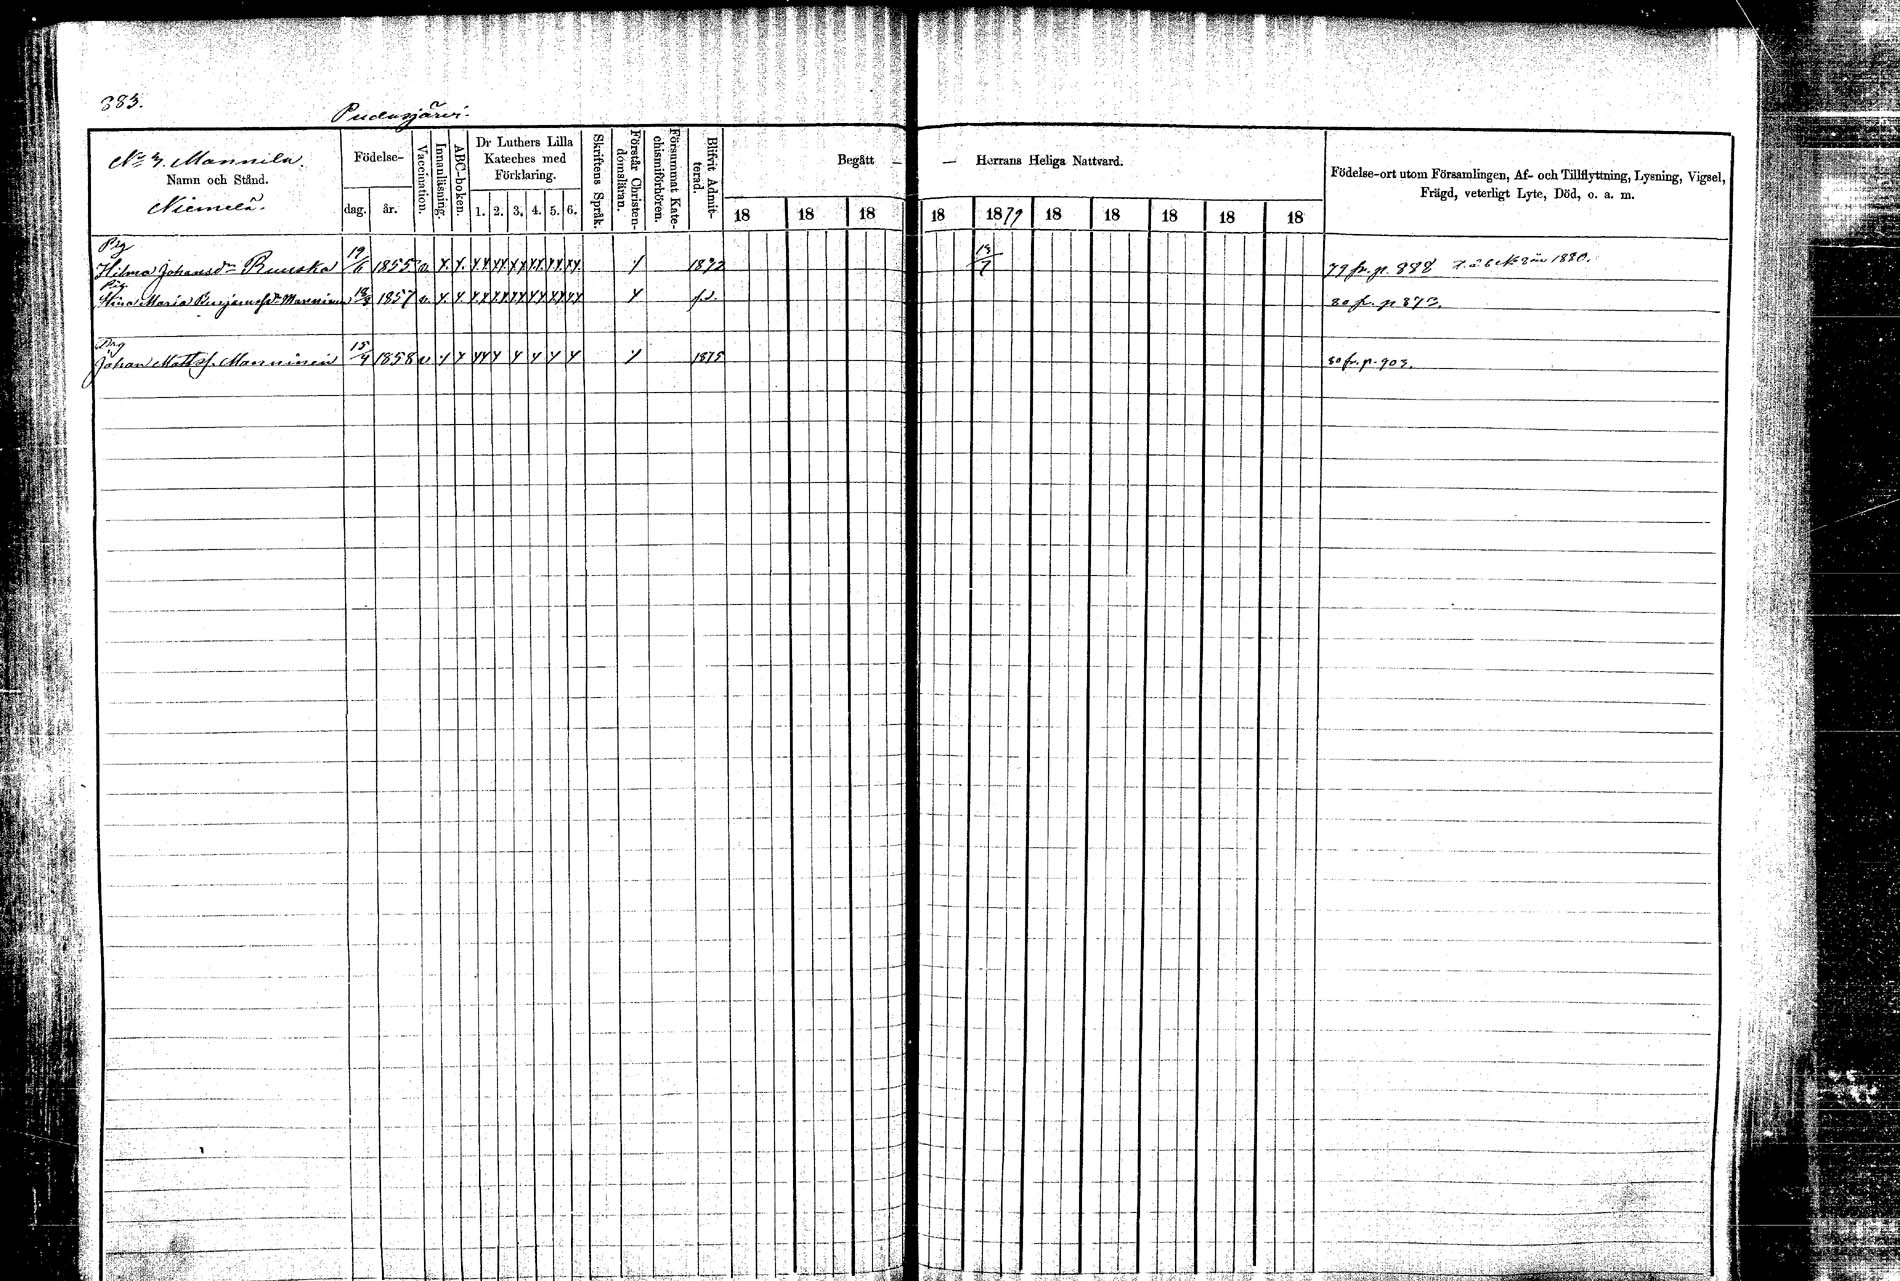 383.
Pudasjärvi.
No 3. Mannila.
Namn och Stånd.
Niemelä.
Födelse-
dag. år.
Vaccination.
Innanläsning.
ABC-boken.
Dr Luthers Lilla
Kateches med
Förklaring.
1. 2. 3. 4. 5. 6.
Skriftens Språk.
Förstår Christen-
domsläran.
Försummat Kate-
chismiförhören.
Blifvit Admit-
terad.
Begått — — Herrans Heliga Nattvard.
18 18 18 18 1879 18 18 18 18 18
Födelse-ort utom Församlingen, Af- och Tillflyttning, Lysning, Vigsel,
Frägd, veterligt Lyte, Död, o. a. m.
Pig
Hilma Johansdr Ruuska 19/6 1855 v. 1872 13/7 79 fr. p. 888
Pig.
Stina Maria Benjamsdr Manninen 1857 v. 80 fr. p 873.
Drg
Johan Matts. Manninen 15/4 1858 v. 1875 80 fr. p. 903.